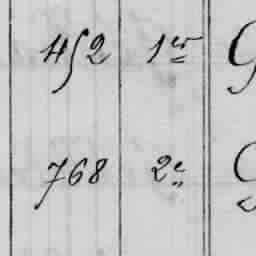 452 1er G
768 2e